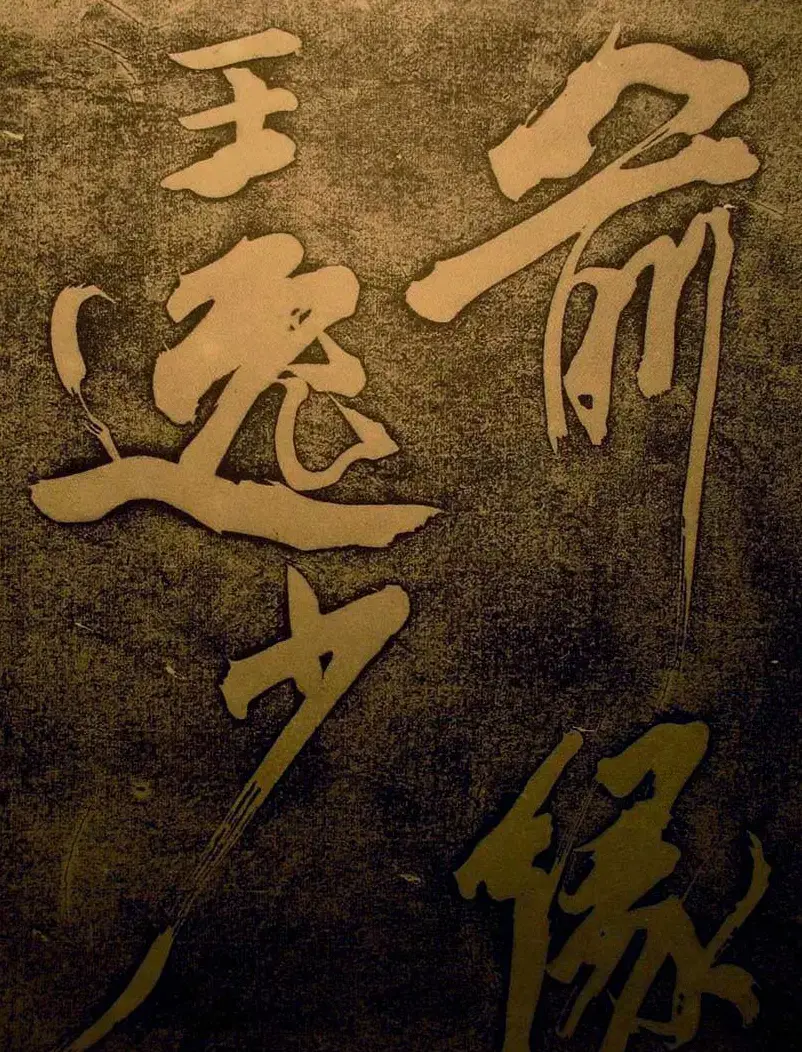 像
王逸少